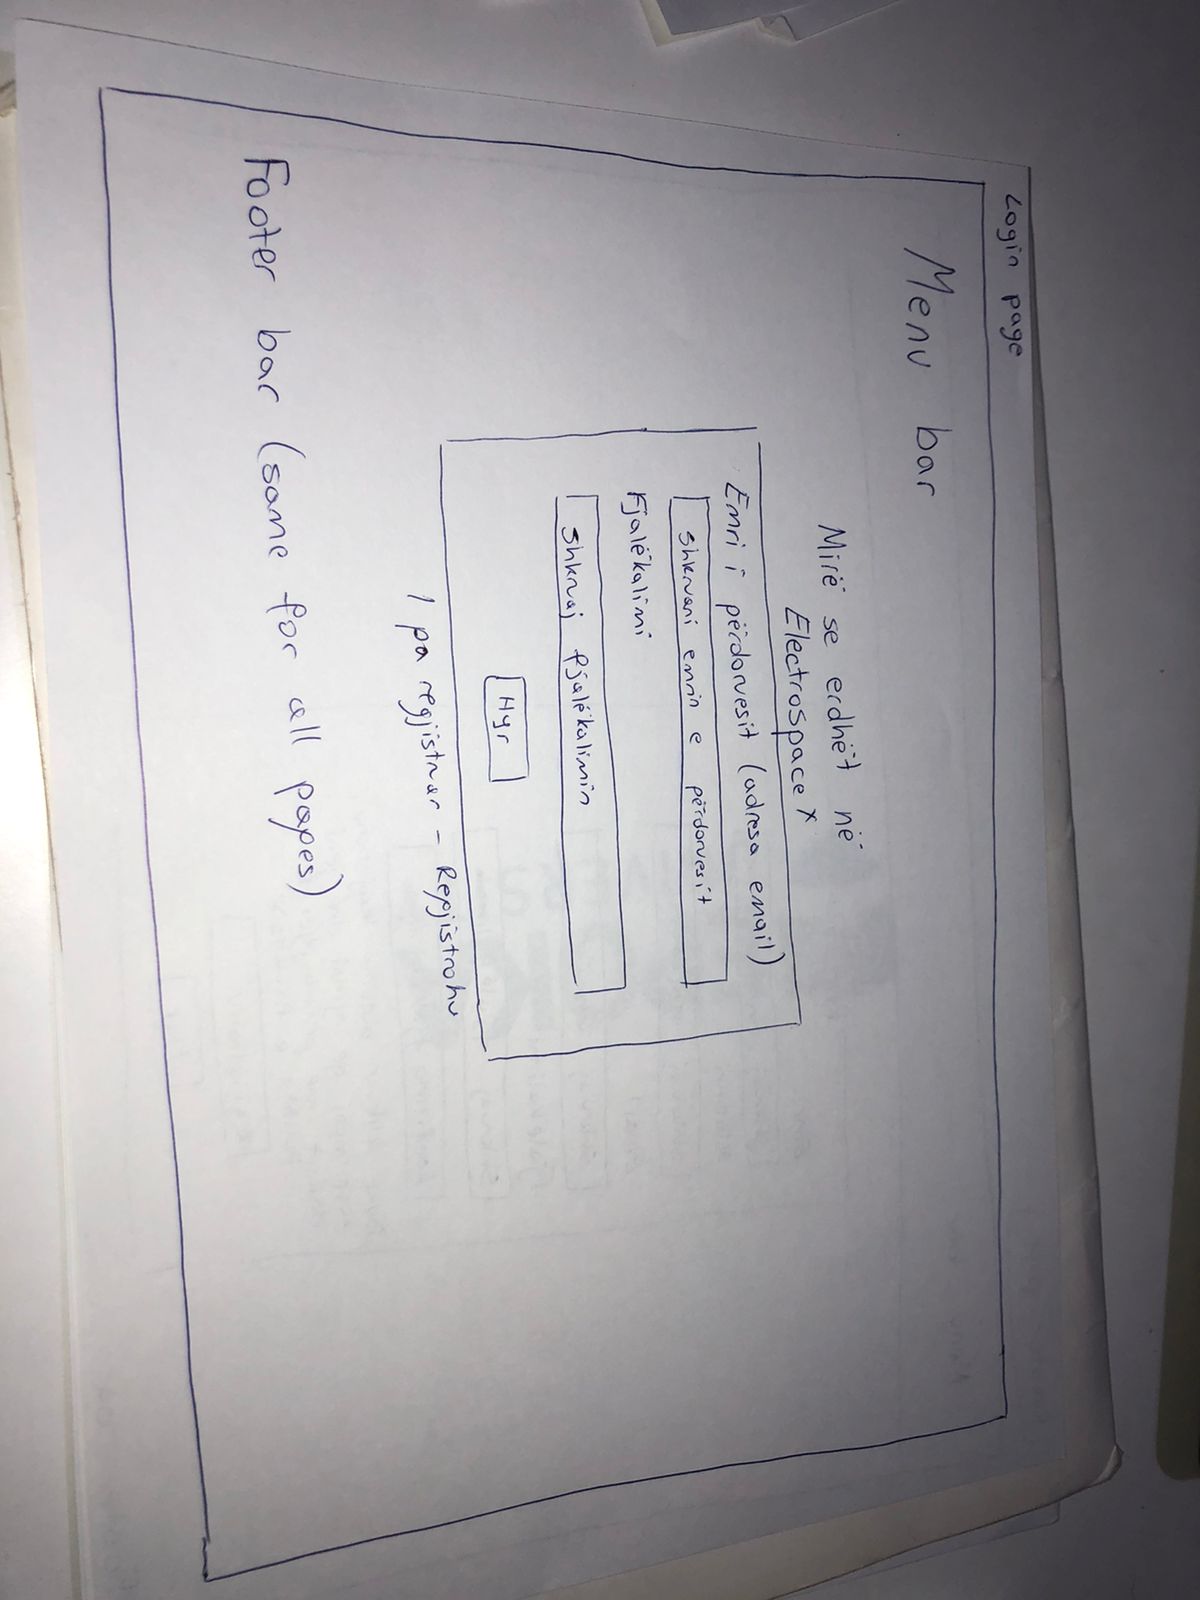 Login page
Menu bar
Mirë se erdhët në
ElectroSpaceX
Emri i përdoruesit (adresa email)
Shkruani emrin e përdoruesit
Fjalëkalimi
Shkruaj fjalëkalimin
Hyr
I pa regjistruar - Regjistrohu
Footer bar (same for all pages)